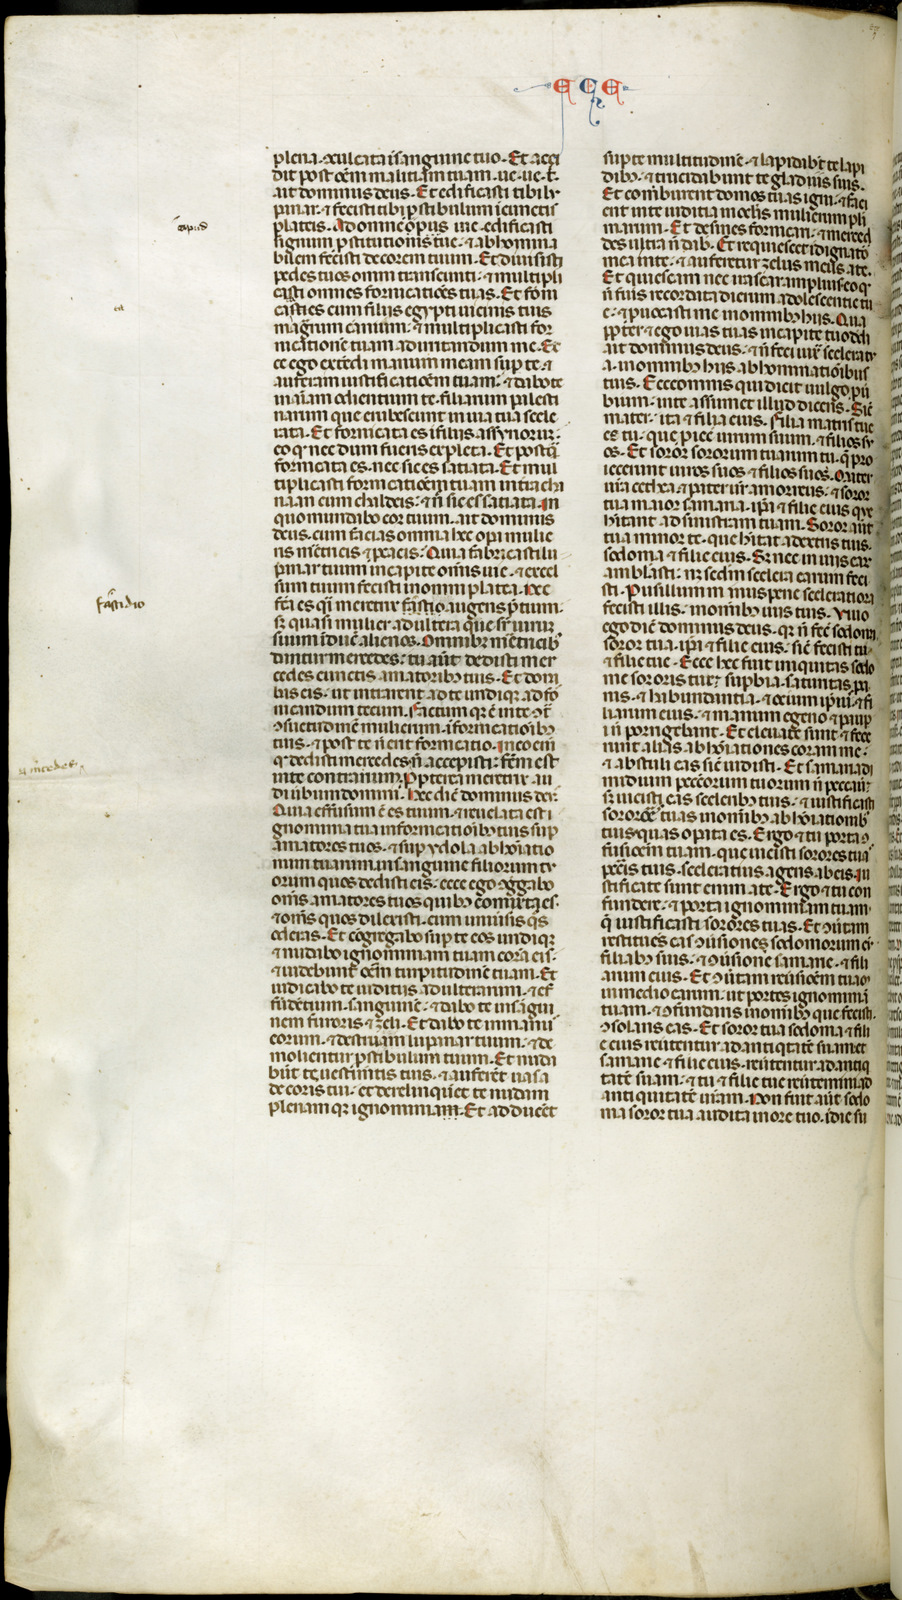 E C E
plena · c̄culcata i sanguine tuo · Et acci
dit post oēm malitiam tuam · ue · ue · t̄ ·
ait dominus deus · Et edificasti tibi lu
panar · ⁊ fecisti tibi p̱stibulum ī cunctis
plateis · Ad omne c̄apud uie · edificasti
signum p̱stitutionis tue · ⁊ abhomina
bilem fecisti decorem tuum · Et diuisisti
pedes tuos omni transeunti · ⁊ multipli
casti omnes fornicatiōes tuas · Et forni
catus es cum filiis egypti uicinis tuis
magnarum carnium · ⁊ multiplicasti for
nicationē tuam ad irritandum me · Ec
ce ego extēdi manum meam sup te · ⁊
auferam iustificatiōem tuam · ⁊ dabo te
in aīam odientium te · filiarum pilesti
narum que erubescunt in uia tua scele
rata · Et fornicata es ī filiis assyriorum ·
eo qꝫ nec dum fueris expleta · Et postq̄
fornicata es · nec sic es satiata · Et mul
tiplicasti fornicatiōem tuam in tra cha
naan cum chaldeis · ⁊ n̄ sic es satiata · In
quo mundabo cor tuum · ait dominus
deus · cum facias omnia hec opera mulie
ris mēricis ⁊ p̱cacis · Quia fabricasti lu
panar tuum in capite omīs uie · ⁊ excel
sum tuum fecisti in omni platea · Nec
fc̄a es q̄si meretrix fastio augens p̄tium ·
sꝫ quasi mulier adultera que sr̄ uirum
suum īduc̄ alienos · Omnibꝫ mēricibꝫ
dantur mercedes · tu aūt dedisti mer
cedes cunctis amatoribꝫ tuis · Et dona
bas eis · ut intrarent ad te undiqꝫ ad for
nicandum tecum · Factum qꝫ ē in te ꝯt̄
ꝯsuetudinē mulierum · ī fornicatiōibꝫ
tuis · ⁊ post te n̄ erit fornicatio · In eo enī
qꝫ dedisti mercedes · n̄ accepisti · fc̄m est
in te contrarium · Pp̱terea meretrix au
di uerbum domini · Hec dic̄ dominus deus ·
Quia effusum ē es tuum · ⁊ reuelata est i
gnominia tua in fornicatiōibꝫ tuis sup
amatores tuos · ⁊ sup ydola abhoīatio
num tuarum · in sanguine filiorum tu
orum quos dedisti eis · ecce ego ꝯg̱gabo
omīs amatores tuos quibꝫ cōmixta es ·
⁊ omīs quos dilexisti · cum uniūsis q̄s
oderas · Et cōgregabo sup te eos undiqꝫ ·
⁊ nudabo ignominiam tuam corā eis ·
⁊ uidebunt oēm turpitudinē tuam · Et
iudicabo te iudiciis adulterarum · ⁊ ef
fūdētium sanguinē · ⁊ dabo te in sangui
nem furoris ⁊ zeli · Et dabo te in manus
eorum · ⁊ destruam lupanar tuum · ⁊ de
molientur p̱stibulum tuum · Et nuda
būt te uestimētis tuis · ⁊ auferēt uasa
decoris tui · et derelinquēt te nudam
plenam qꝫ ignominiam · Et adducēt
sup te multitudinē · ⁊ lapidabūt te lapi
dibꝫ · ⁊ trucidabunt te gladiis suis ·
Et comburent domos tuas igni · ⁊ faci
ent in te iuditia in oclis mulierum pli
marum · Et desines fornicari · ⁊ merced
des ultra n̄ dab · Et requiescet idignatō
mea in te · ⁊ auferetur zelus meus a te ·
Et quiescam nec irascar amplius · eo qꝫ
n̄ fuis recordata dierum adolescentie tu
e · ⁊ p̱uocasti me in omnibꝫ hiis · Qua
pp̱ter ⁊ ego uias tuas in capite tuo dedi
ait dominus deus · ⁊ n̄ feci iuxͣ scelera tu
a · in omnibꝫ hiis abhominatiōibus
tuis · Ecce omnis qui dicit uulgo p̱u
bium · in te assumet illud dicens · Sic̄
mater · ita ⁊ filia eius · Filia matris tue
es tu · que p̱iec̄ uirum suum · ⁊ filios su
os · Et soror sororum tuarum tu · q̄ pro
iecerunt uiros suos ⁊ filios suos · Mater
ur̄a cethea ⁊ pater ur̄ amorreus · ⁊ soror
tua maior samaria · ip̄a ⁊ filie eius que
hītant ad sinistram tuam · Soror aūt
tua minor te · que hītat a dextris tuis ·
sodoma ⁊ filie eius · Sꝫ nec in uiis earum
ambulasti · nꝫ sedm scelera earum feci
sti · Pusillum minus pene sceleratiora
fecisti illis · in omnibꝫ uiis tuis · Viuo
ego dic̄ dominus deus · qꝫ n̄ fec̄ sodoma
soror tua · ip̄a ⁊ filie eius · sic̄ fecisti tu ·
⁊ filie tue · Ecce hec fuit iniquitas sodo
me sororis tue · supbia · saturitas pa
nis · ⁊ habundantia · ⁊ ocium ip̄ius · ⁊ fi
liarum eius · ⁊ manum egeno ⁊ paup
i n̄ porrigebant · Et eleuate sunt ⁊ fece
runt alias abhoīationes coram me ·
⁊ abstuli eas sicut uidisti · Et samaria di
midium peccōrum tuorum n̄ peccauit ·
sꝫ uicisti eas sceleribꝫ tuis · ⁊ iustificasti
sorores tuas in omībꝫ abhoīationibꝫ
tuis · quas opata es · Ergo ⁊ tu porta ꝯ
fusiōem tuam · que uicisti sorores tuas
pccīs tuis · sceleratius agens ab eis · Iu
stificate sunt enim a te · Ergo ⁊ tu con
fundere · ⁊ porta ignominiam tuam ·
q̄ iustificasti sorores tuas · Et ꝯūtam
restituēs eas ꝯūsiones sodomorum cū
filiabꝫ suis · ⁊ ꝯūsione samarie · ⁊ fili
arum eius · Et ꝯūtam reūsiōem tuam
in medio earum · ut portes ignominiā
tuam · ⁊ ꝯfundaris in omībꝫ que fecisti ·
ꝯsolans eas · Et soror tua sodoma ⁊ fili
e eius reūtentur ad antiq̄tatē suam et
samarie ⁊ filie eius · reūtentur ad antiq
tatē suam · ⁊ tu ⁊ filie tue reūtemini ad
antiquitatē ur̄am · Non fuit aūt sodo
ma soror tua audita in ore tuo · ī die su
c̄apud
est
fastidio
mercedes